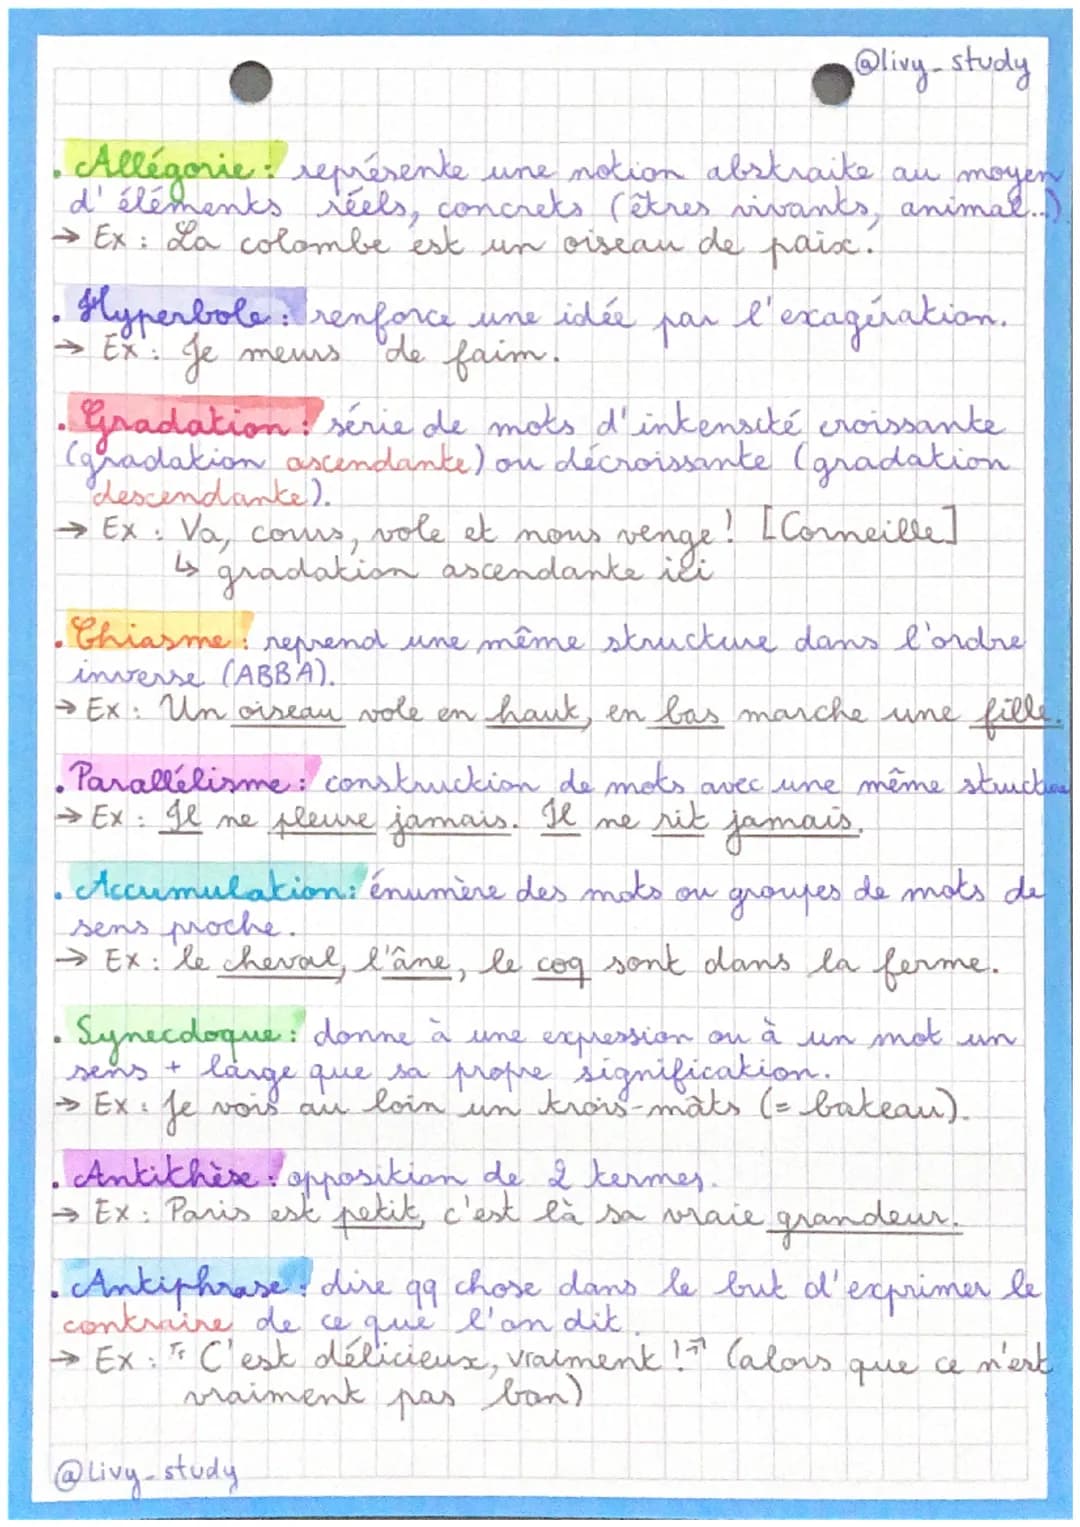 @livy_study
. Allégorie : représente une notion abstraite au moyen
d'éléments réels, concrets (êtres vivants, animal...)
→ Ex : La colombe est un oiseau de paix.
. Hyperbole : renforce une idée par l'exagération.
→ Ex : Je meurs de faim.
. Gradation : série de mots d'intensité croissante
(gradation ascendante) ou décroissante (gradation
descendante).
→ Ex : Va, cours, vole et nous venge ! [Corneille]
↳ gradation ascendante ici
. Chiasme : reprend une même structure dans l'ordre
inverse (ABBA).
→ Ex : Un oiseau vole en haut, en bas marche une fille.
. Parallélisme : construction de mots avec une même structure
→ Ex : Il ne pleure jamais. Il ne rit jamais.
. Accumulation : énumère des mots ou groupes de mots de
sens proche.
→ Ex : le cheval, l'âne, le coq sont dans la ferme.
. Synecdoque : donne à une expression ou à un mot un
sens + large que sa propre signification.
→ Ex : Je vois au loin un trois-mâts (= bateau).
. Antithèse : opposition de 2 termes.
→ Ex : Paris est petit, c'est là sa vraie grandeur.
. Antiphrase : dire qq chose dans le but d'exprimer le
contraire de ce que l'on dit.
→ Ex : " C'est délicieux, vraiment ! " (alors que ce n'est
vraiment pas bon)
@Livy_study